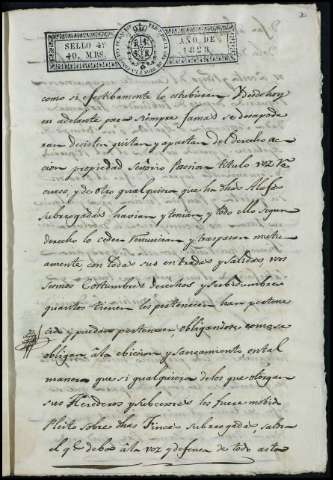 2
SELLO 4º
40. MRS.
AÑO DE
1828
como si efectibamente lo estubieran Desde hoy
en adelante para siempre jamas se desapode
ran desisten quitan y apartan del derecho ac
cion propiedad Señorio Posecion titulo voz re
curso, y de otro qualquiera que
subrogadas havian y tenian, y todo ello segun
derecho lo ceden renuncian y traspasan
amente con todas sus entradas y salidas usos
Costumbres derechos y serbidumbres
quantos tienen les pertenecen han pertene
cido y pueden pertenecer obligandose, como se
obligan á la ebiccion y saneamiento en tal
manera que si qualquiera delos que otorgan
sus Herederos y subcesores les fuere mobido
Pleito sobre dhas Fincas subrogadas saldra
el qe deba á la voz y defensa de todo